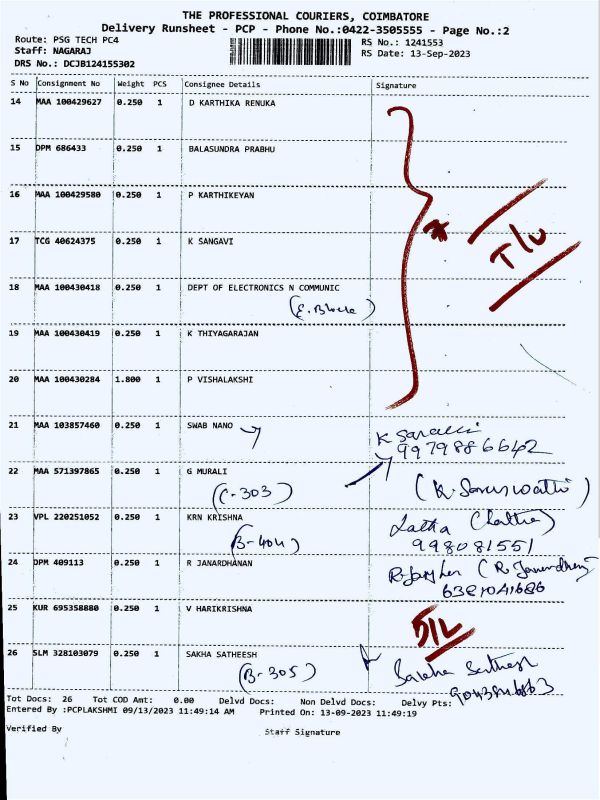 THE PROFESSIONAL COURIERS, COIMBATORE
Delivery Runsheet - PCP - Phone No.:0422-3505555 - Page No.:2
Route: PSG TECH PC4 RS No.: 1241553
Staff: NAGARAJ RS Date: 13-Sep-2023
DRS No.: DCJB124155302
S No Consignment No Weight PCS Consignee Details Signature
14 MAA 100429627 0.250 1 D KARTHIKA RENUKA
15 DPM 686433 0.250 1 BALASUNDRA PRABHU
16 MAA 100429580 0.250 1 P KARTHIKEYAN
17 TCG 40624375 0.250 1 K SANGAVI
T/U
18 MAA 100430418 0.250 1 DEPT OF ELECTRONICS N COMMUNIC
19 MAA 100430419 0.250 1 K THIYAGARAJAN
20 MAA 100430284 1.800 1 P VISHALAKSHI
21 MAA 103857460 0.250 1 SWAB NANO
9979886642
22 MAA 571397865 0.250 1 G MURALI
(C-303) (K. Saraswathi)
23 VPL 220251052 0.250 1 KRN KRISHNA Latha (Latha)
(B-404) 998081551
24 DPM 409113 0.250 1 R JANARDHANAN
6381041686
25 KUR 695358880 0.250 1 V HARIKRISHNA
26 SLM 328103079 0.250 1 SAKHA SATHEESH
(B-305)
Tot Docs: 26 Tot COD Amt: 0.00 Delvd Docs: Non Delvd Docs: Delvy Pts:
Entered By :PCPLAKSHMI 09/13/2023 11:49:14 AM Printed On: 13-09-2023 11:49:19
Verified By Staff Signature